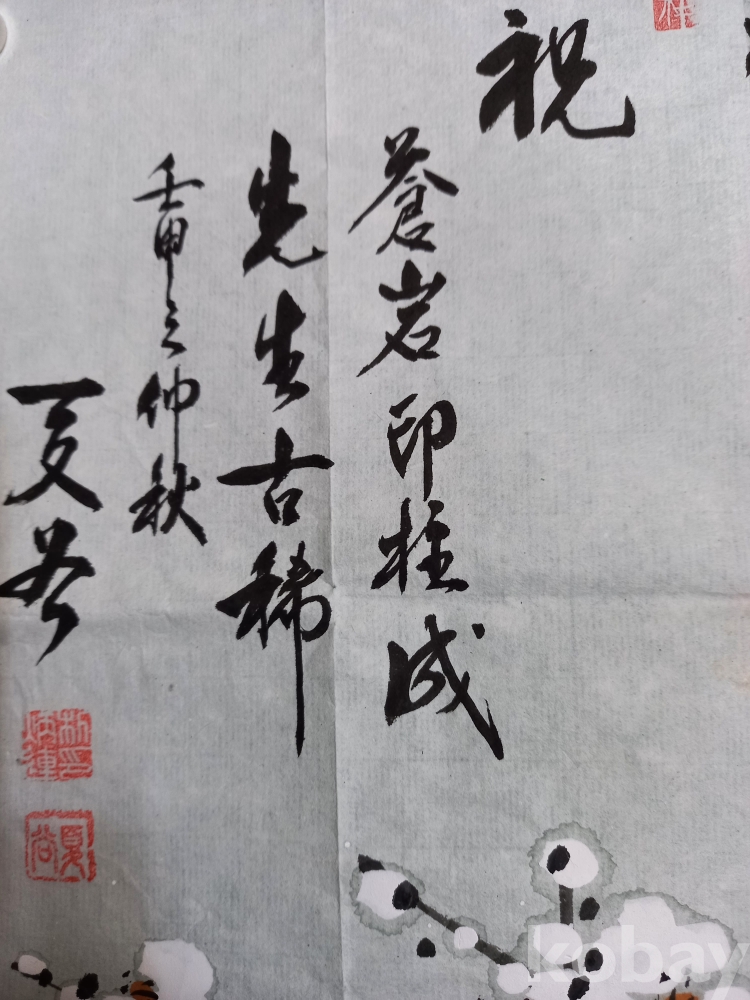 祝
蒼岩印柱成
先生古稀
壬申之仲秋
夏
kobay